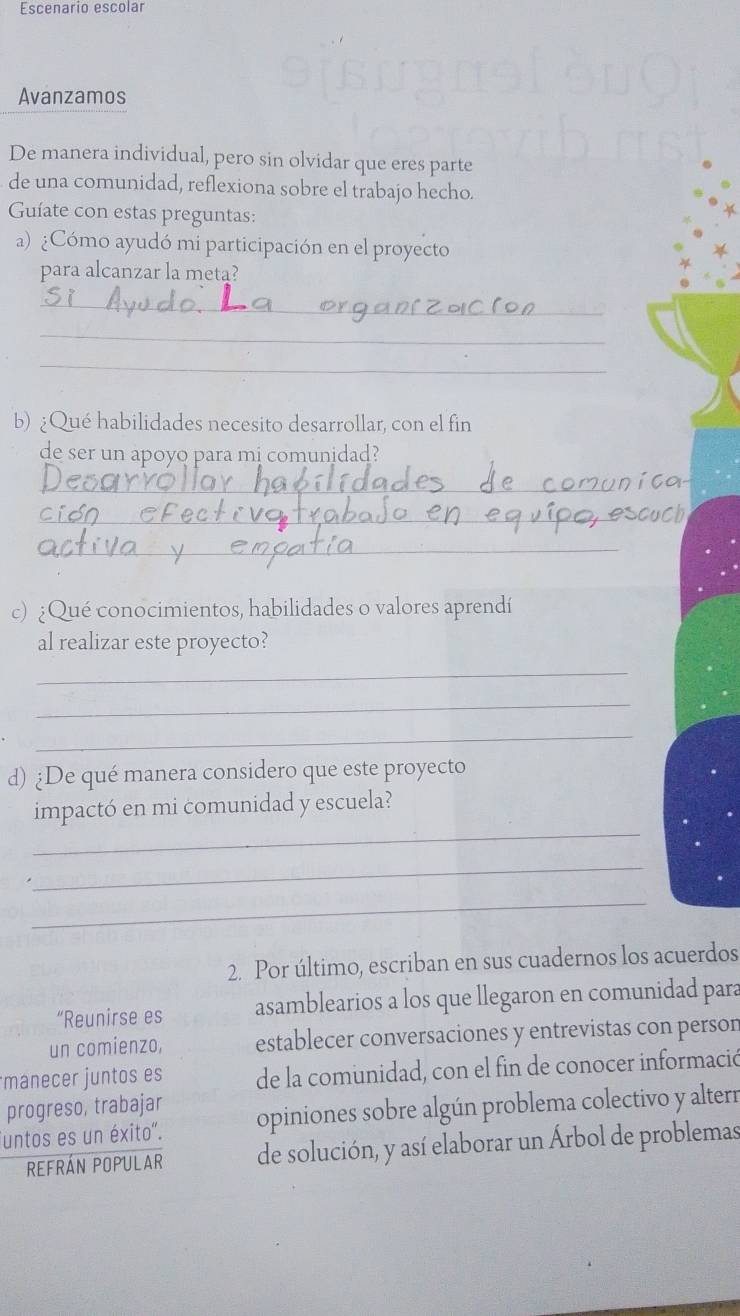 Escenario escolar
Avanzamos
De manera individual, pero sin olvidar que eres parte
de una comunidad, reflexiona sobre el trabajo hecho.
Guíate con estas preguntas:
a) ¿Cómo ayudó mi participación en el proyecto
para alcanzar la meta?
Si Ayudo. La organización
b) ¿Qué habilidades necesito desarrollar, con el fin
de ser un apoyo para mi comunidad?
Desarrollar habilidades de comunica
ción efectiva, trabajo en equipo, escuch
activa y empatia
c) ¿Qué conocimientos, habilidades o valores aprendí
al realizar este proyecto?
d) ¿De qué manera considero que este proyecto
impactó en mi comunidad y escuela?
2. Por último, escriban en sus cuadernos los acuerdos
asamblearios a los que llegaron en comunidad para
establecer conversaciones y entrevistas con person
de la comunidad, con el fin de conocer informació
opiniones sobre algún problema colectivo y altern
de solución, y así elaborar un Árbol de problemas
"Reunirse es
un comienzo,
rmanecer juntos es
progreso, trabajar
juntos es un éxito".
REFRÁN POPULAR